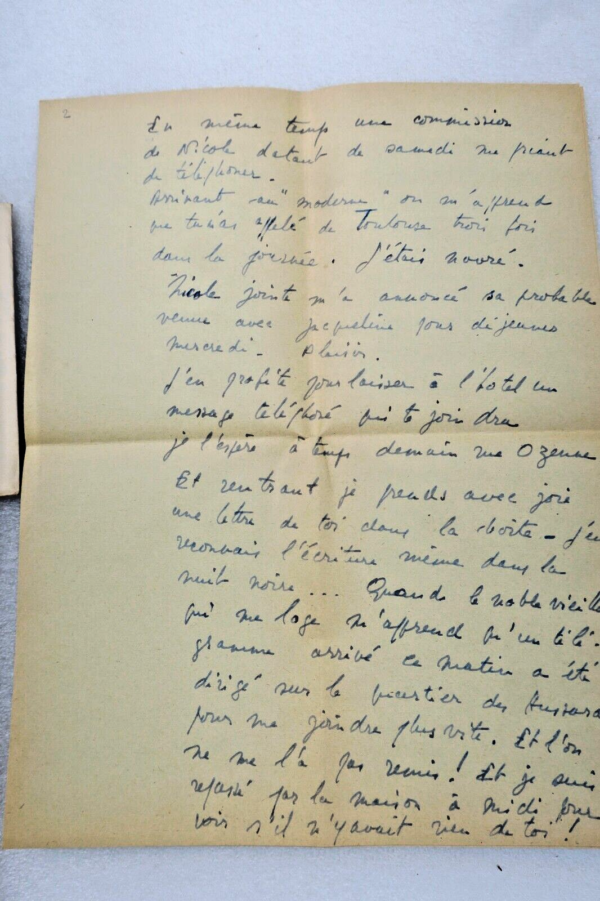 2
En même temps une commission
de Nicole datant de samedi me priant
de téléphoner.
Arrivant au "moderne" on m'apprend
que tu m'as appelé de Toulouse trois fois
dans la journée. J'étais navré.
Nicole jointe m'a annoncé sa probable
venue avec Jacqueline pour déjeuner
mercredi. Plaisir.
J'en profite pour laisser à l'hotel un
message téléphoné qui te joindra
je l'espère à temps demain rue Ozenne
Et rentrant je prends avec joie
une lettre de toi dans la boîte - j'en
reconnais l'écriture même dans la
nuit noire ... Quand la noble vieille
qui me loge m'apprend qu'un télé-
gramme arrivé ce matin a été
dirigé sur le quartier des Hussards
pour me joindre plus vite. Et l'on
ne me l'a pas remis! Et je suis
repassé par la maison à midi pour
voir s'il n'y avait rien de toi!